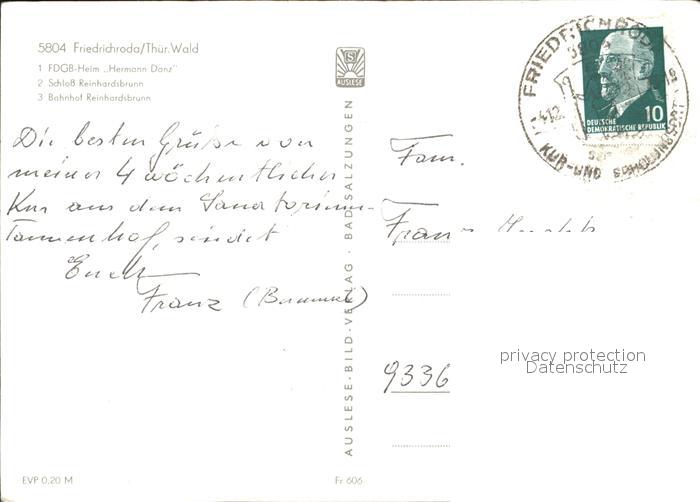 5804 Friedrichroda/Thür. Wald
1 FDGB-Heim „Hermann Danz"
2 Schloß Reinhardsbrunn
3 Bahnhof Reinhardsbrunn
Die besten Grüße von
meiner 4 wöchentlichen
Kur aus dem Sanatorium
Tannenhof, sendet
Euch
Franz
EVP 0,20 M
AUSLESE
AUSLESE-BILD-VERLAG · BAD SALZUNGEN
Fr 606
FRIEDRICHRODA
KUR-UND ERHOLUNGSORT
10
DEUTSCHE
DEMOKRATISCHE REPUBLIK
Fam.
Franz
9336
privacy protection
Datenschutz